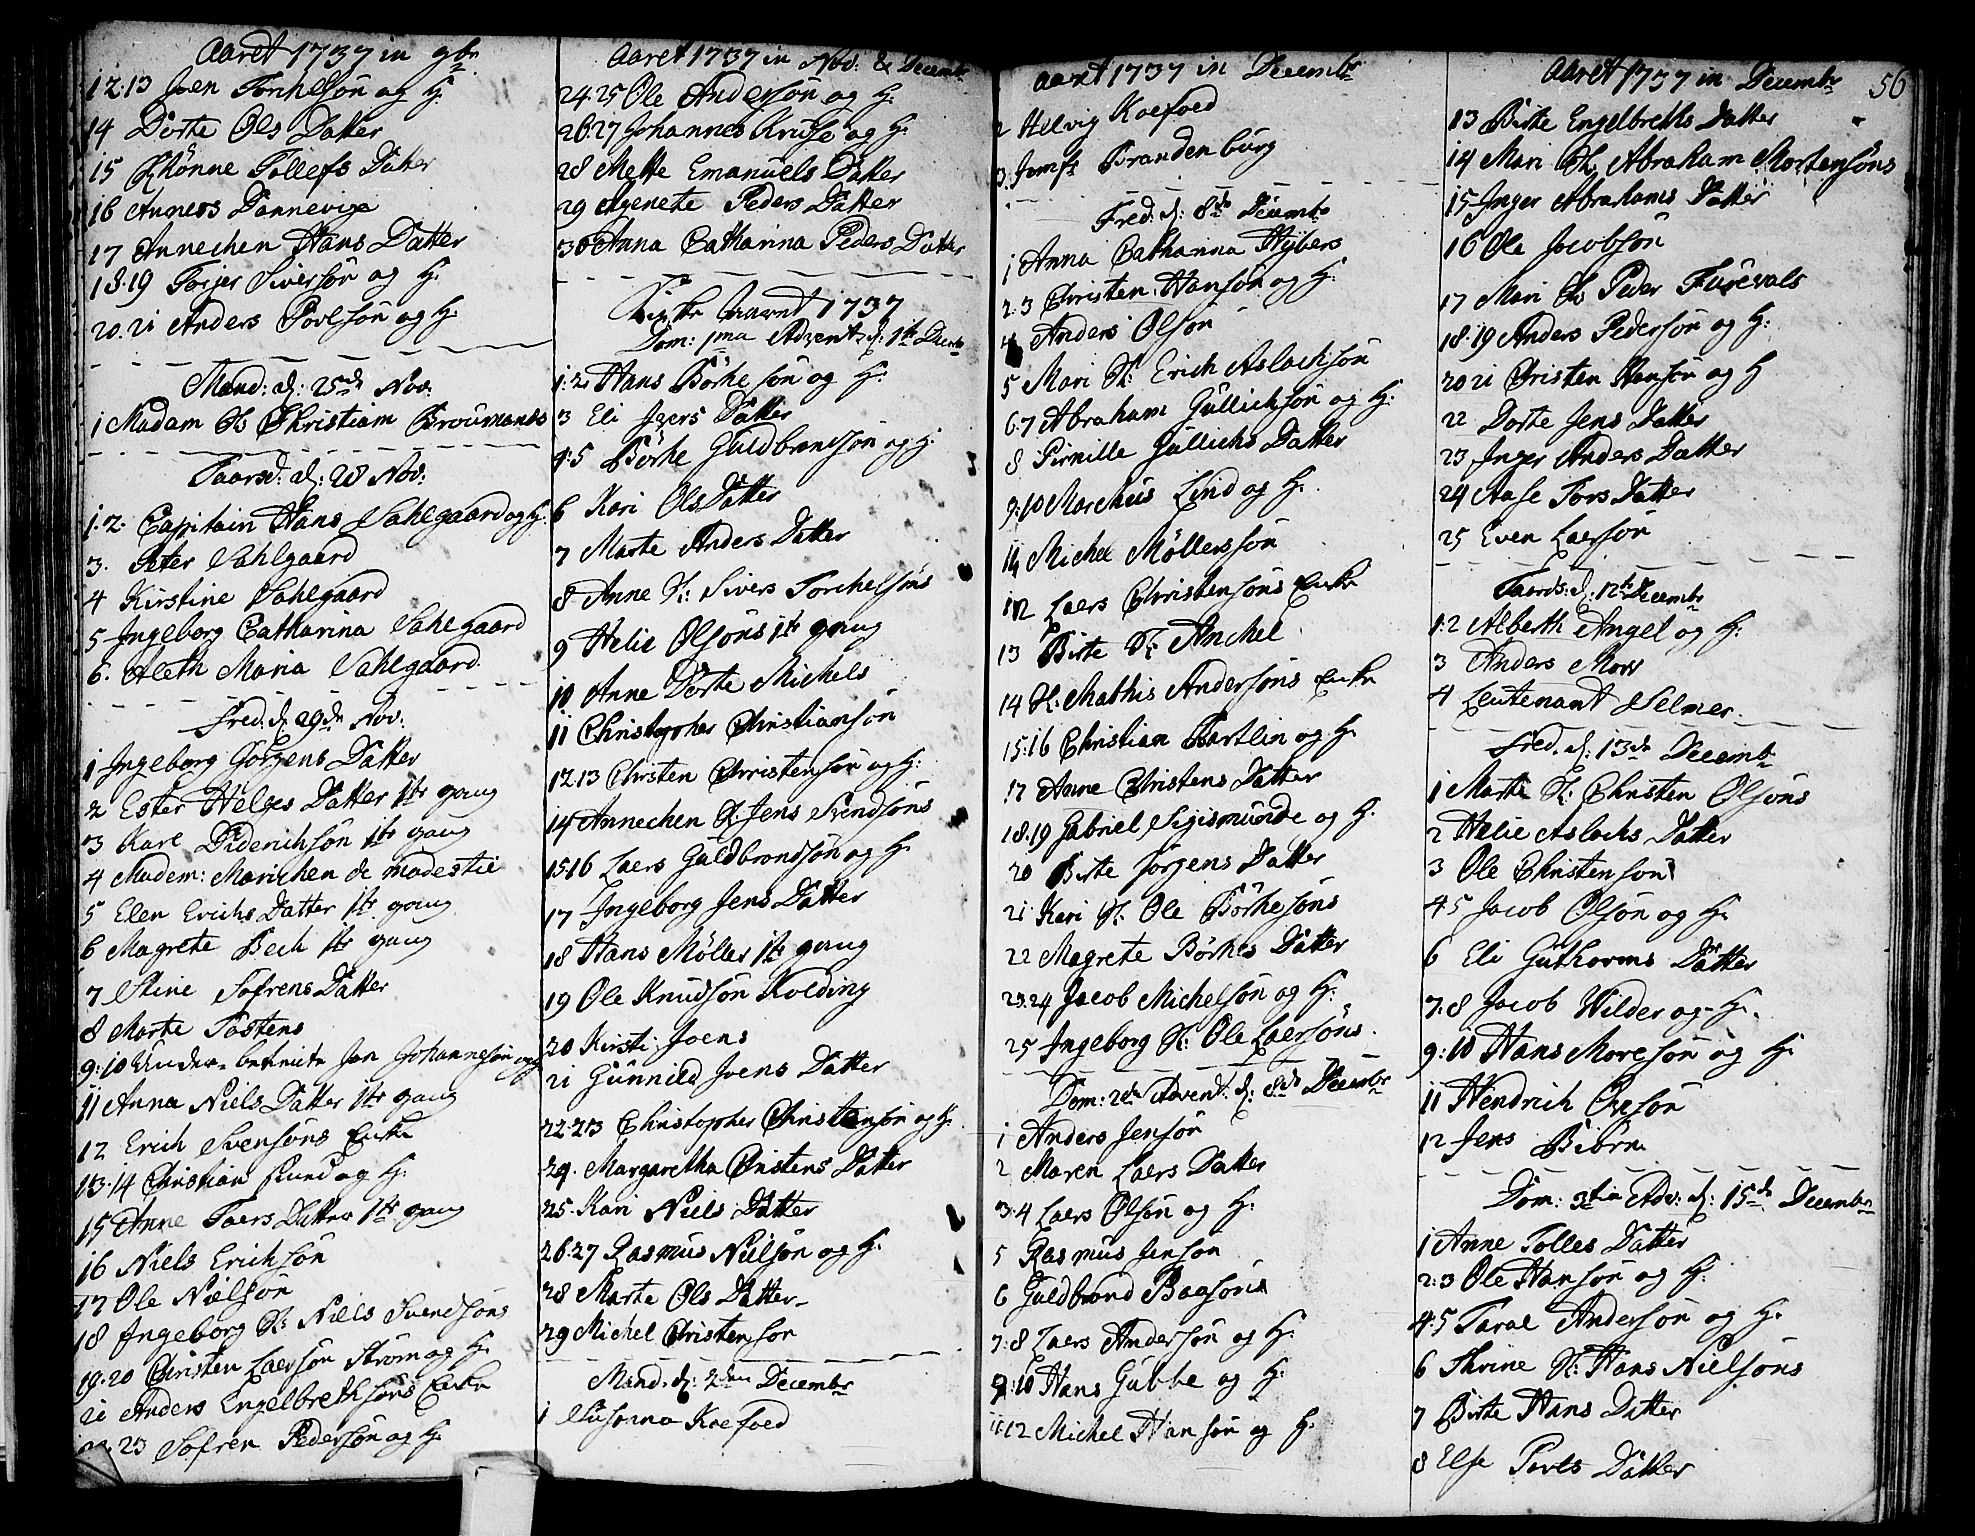 Aaret 1737 in 9br
12.13 Joen Torkelsøn og H:
14 Dorte Ols Datter
15 Rønne Tollefs Datter
16 Anners Dannevig
17 Annechen Hans Datter
18.19 Torjer Siversøn og H:
20.21 Anders Povlsøn og H:
Mand: d: 25de Nov:
1 Madam S. Christiam Broumands
Taarsd: d: 28 Nov:
1.2. Capitain Hans Sahlgaard og H:
3. Peter Sahlgaard
4 Kirstine Sahlgaard
5 Ingeborg Catharina Sahlgaard
6. Aleth Maria Sahlgaard
Fred: d. 29de Nov:
1 Ingeborg Görgens Datter
2 Ester Helges Datter 1te gang
3 Karl Diderichsøn 1te gang
4 Madem: Marichen de Modestie
5 Elen Erichs Datter 1te gang
6 Magrete Bech 1te gang
7 Stine Sofrens Datter
8 Marte Tostens
9:10 Jan Johannesøn og H
11 Anna Niels Datter 1te gang
12 Erich Svensøns Encke
13.14 Christian Lund og H:
15 Anne Taers Datter 1te gang
16 Niels Erichsøn
17 Ole Nielsøn
18 Ingeborg S: Niels Svendsøns
19.20 Christen Laersøn Strøm og H:
21 Anders Engelbrethsøns Encke
22.23 Sofren Pedersøn og H:
Aaret 1737 in Nov: & Decembr
24.25 Ole Andersøn og H:
26.27 Johannes Kruse og H:
28 Mette Emanuels Datter
29 Agenete Peders Datter
30 Anna Catharina Peders Datter
Kirke Aaret 1737
Dom: 1ma Advent d: 1te Decbr
1.2. Hans Börhesøn og H:
3 Eli Jvers Datter
4.5 Börhe Guldbrandsøn og H:
6 Kari Ols Datter
7 Marte Anders Datter
8 Anne S: Sivers Torchelsøns
9 Helie Olsøns 1te gang
10 Anne Dorte Michels
11 Christopher Christiansøn
12.13 Christen Christensøn og H:
14 Annechen S: Jens Svendsøns
15.16 Laers Guldbrandsøn og H:
17 Ingeborg Jens Datter
18 Hans Möller 1te gang
19 Ole Knudsøn Kolding
20 Kirsti Joens
21 Gunnild Joens Datter
22.23 Christopher Christensøn og H:
24. Margaretha Cristens Datter
25. Kari Niels Datter
26.27 Rasmus Nielsøn og H:
28 Marte Ols Datter
29 Michel Cristensøn
Mand. d: 2den Decembr
1 Susanna Koefoed
Aaret 1737 in Decembr
2 Helvig Koefoed
3. Jomf: Brandenburg
Fred: d: 8de Decembr
1 Anna Catharina Hybers
2.3 Christen Hansøn og H:
4 Anders Olsøn
5 Mari S: Erich Aslacksøn
6.7 Abraham Gullichsøn og H:
8 Pirnille Gullichs Datter
9:10 Marchus Lind og H.
11 Michel Möllersøn
12 Laers Christensøns Encke
13 Birte S: Anchel
14 S: Mathis Andersøns Encke
15:16 Christian Bartlin og H:
17 Anne Christens Datter
18.19 Gabriel Sigismunde og H.
20 Birte Jørgens Datter
21 Kari S: Ole Börhesøns
22 Magrete Börhes Datter
23.24 Jacob Michelsøn og H:
25 Ingeborg S: Ole Laersøns
Dom: 2da Advent: d: 8de Decembr
1 Anders Jensøn
2 Maren Laers Datter
3.4 Laers Olsøn og H:
5 Rasmus Jensøn
6 Guldbrand Baasøns
7:8 Laers Andersøn og H:
9:10 Hans Gubbe og H:
11:12 Michel Hansøn og H:
Aaret 1737 in Decembr 56
13 Birte Engelbreths Datter
14 Mari S. Abraham Mortensøns
15 Inger Abrahams Datter
16 Ole Jacobsøn
17 Mari S. Peder Furevals
18.19 Anders Pedersøn og H:
20 21 Cristen Hansøn og H
22 Dorte Jens Datter
23 Inger Anders Datter
24 Aase Tors Datter
25 Even Laersøn
Taarsd: d: 12te Decembr
1.2 Alberth Angel og H:
3 Anders Mow
4 Leutenant Selmer
Fred. d: 13de Decembr
1 Marte S: Christen Olsøns
2 Helie Aslachs Datter
3 Ole Christensøn
4 5 Jacob Olsøn og H:
6 Eli Guthorms Datter
7.8 Jacob Wilder og H.
9:10 Hans Moresøn og H:
11 Hendrich Ovesøn
12 Jens Biørn
Dom: 3tia Adv: d: 15de Decembr
1 Anne Tolles Datter
2.3 Ole Hansøn og H:
4.5 Taral Andersøn og H:
6 Thrine S: Hans Nielsøns
7 Birte Hans Datter
8 Else Povls Datter